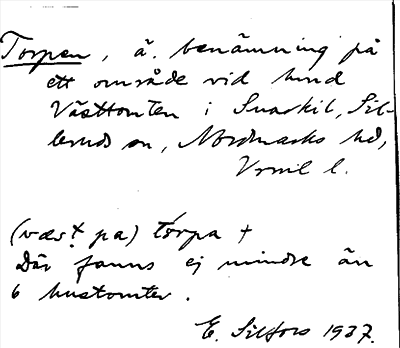 Torpen, ä. benämning på
ett område vid hmd
Västtomten i Svaskil, Sil-
leruds sn, Nordmarks hd,
Vrml l.
(væst pa) torpa +
Där fanns ej mindre än
6 hustomter.
E. Silfors 1937.